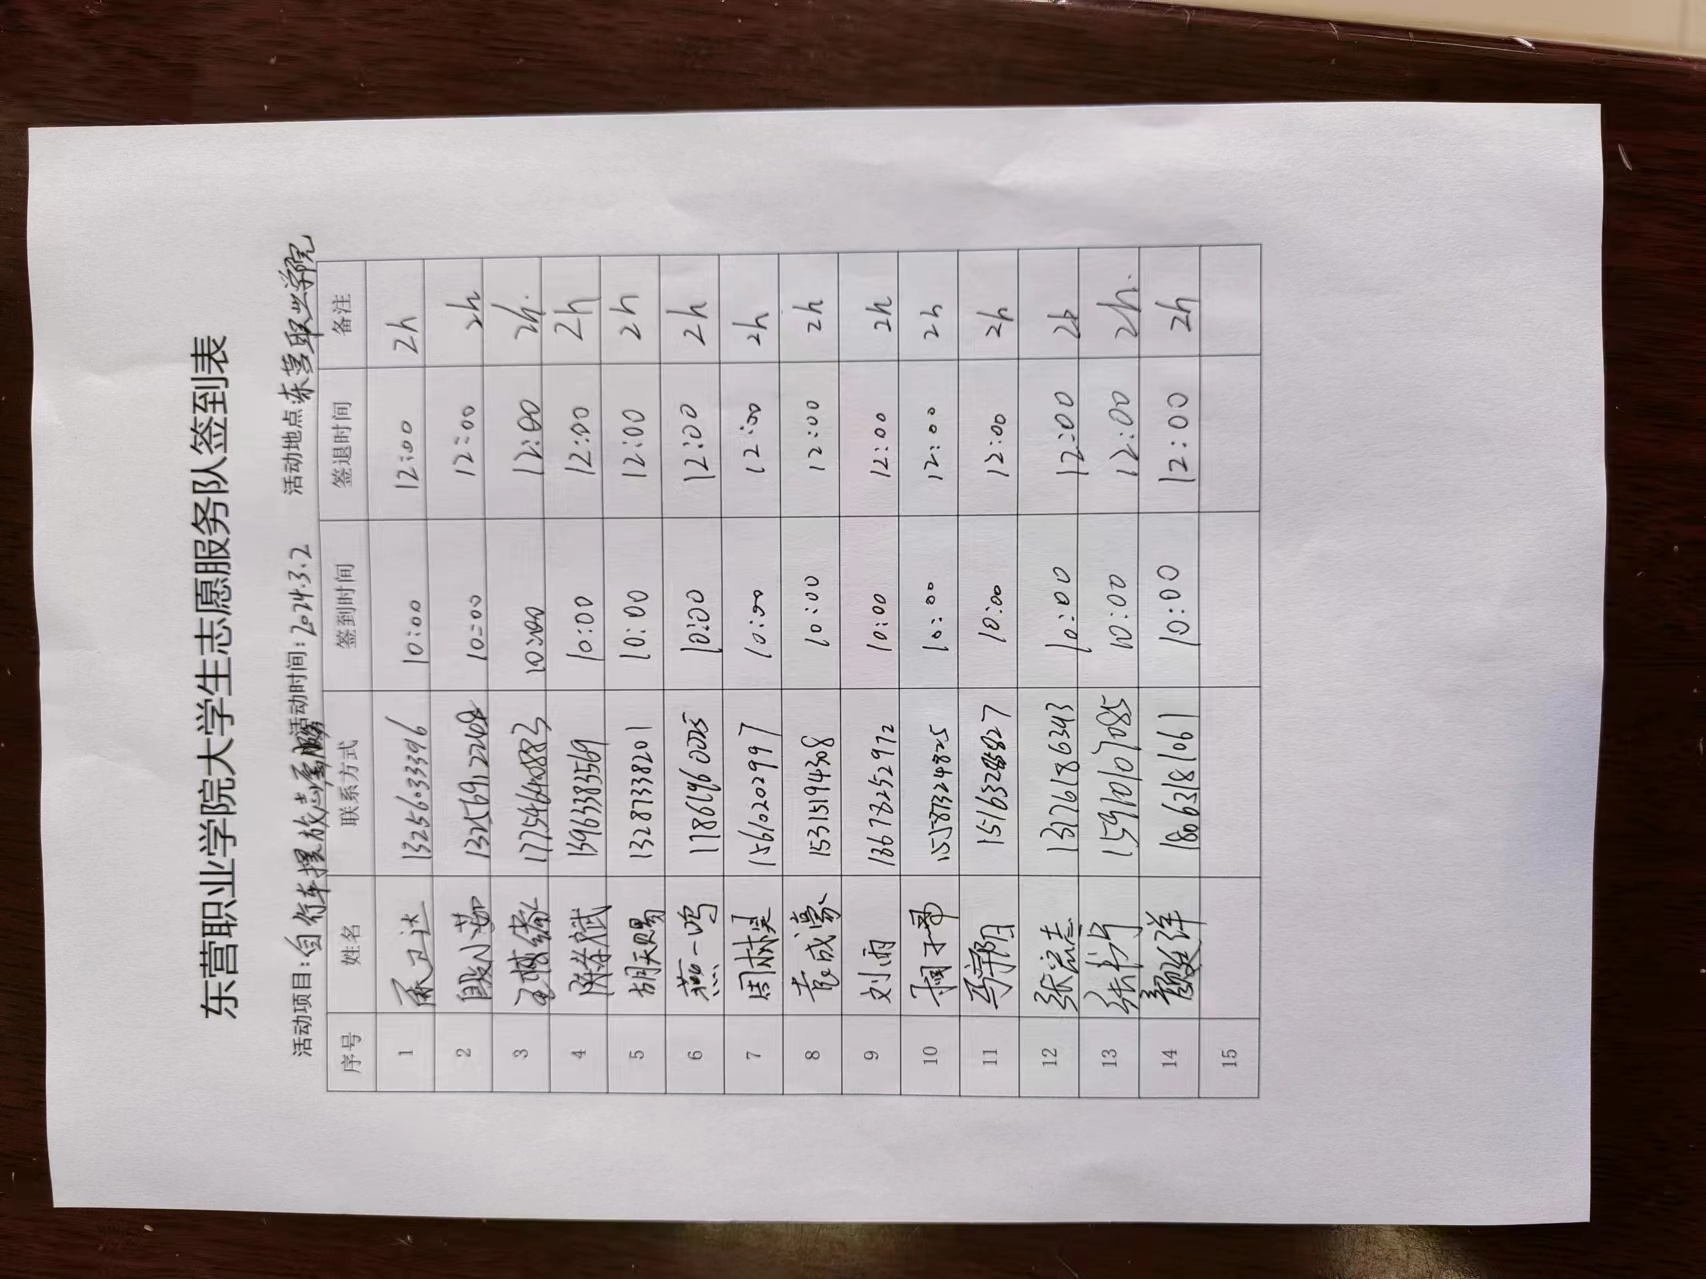 东营职业学院大学生志愿服务队签到表
活动项目:自行车摆放志愿服务 活动时间:2024.3.2 活动地点 东营职业学院
序号 姓名 联系方式 签到时间 签退时间 备注
1 卫达 13256033396 10:00 12:00 2h
2 段小茹 10:00 12:00 2h
3 17754640883 10:00 12:00 2h.
4 陈春斌 13963383569 10:00 12:00 2h
5 胡天赐 13287338201 10:00 12:00 2h
6 燕一鸣 17861960025 10:00 12:00 2h
7 周林昊 15610202997 10:00 12:00 2h
8 袁成蒙 15315194308 10:00 12:00 2h
9 刘雨 13678252972 10:00 12:00 2h
10 1587324825 10:00 12:00 2h
11 10:00 12:00 2h
12 张宗志 13176186343 10:00 12:00 2h
13 张 15910107085 10:00 12:00 2h.
14 18663181061 10:00 12:00 2h
15